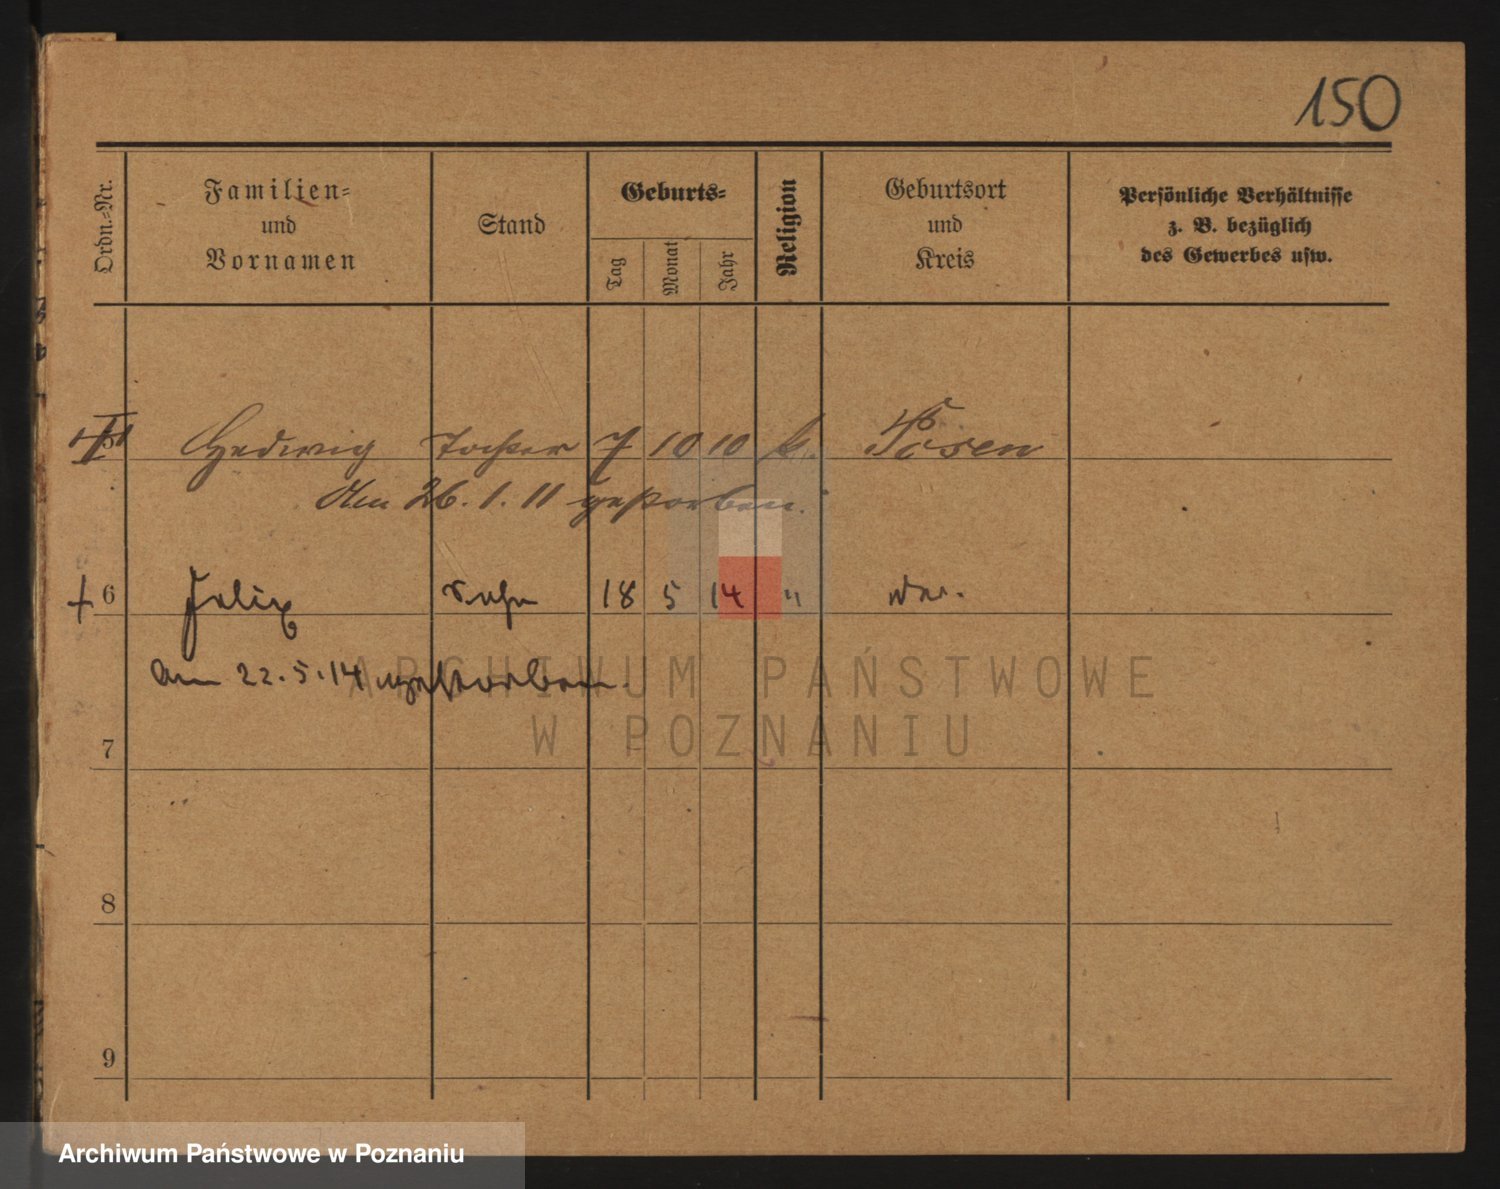 150
Ordn.-Nr.
Familien-
und
Vornamen
Stand
Geburts-
Tag
Monat
Jahr
Religion
Geburtsort
und
Kreis
Persönliche Verhältnisse
z. B. bezüglich
des Gewerbes usw.
Hedwig Tochter 7 10 10 k. Posen
Am 26. 1. 11 gestorben.
† 6 Felix Sohn 18 5 14 "
Am 22.5.14 gestorben.
7
8
9
ARCHIWUM PAŃSTWOWE
W POZNANIU
Archiwum Państwowe w Poznaniu